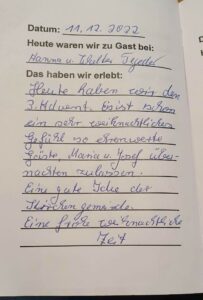 Datum: 11.12.2022
Heute waren wir zu Gast bei:
Hanna u. Walter
Das haben wir erlebt:
Heute haben wir den
3. Advent. Es ist schon
ein sehr weihnachtliches
Gefühl so ehrenwerte
Gäste, Maria u. Josef über-
nachten zulassen.
Eine gute Idee der
Kirchengemeinde.
Eine frohe weihnachtliche
Zeit